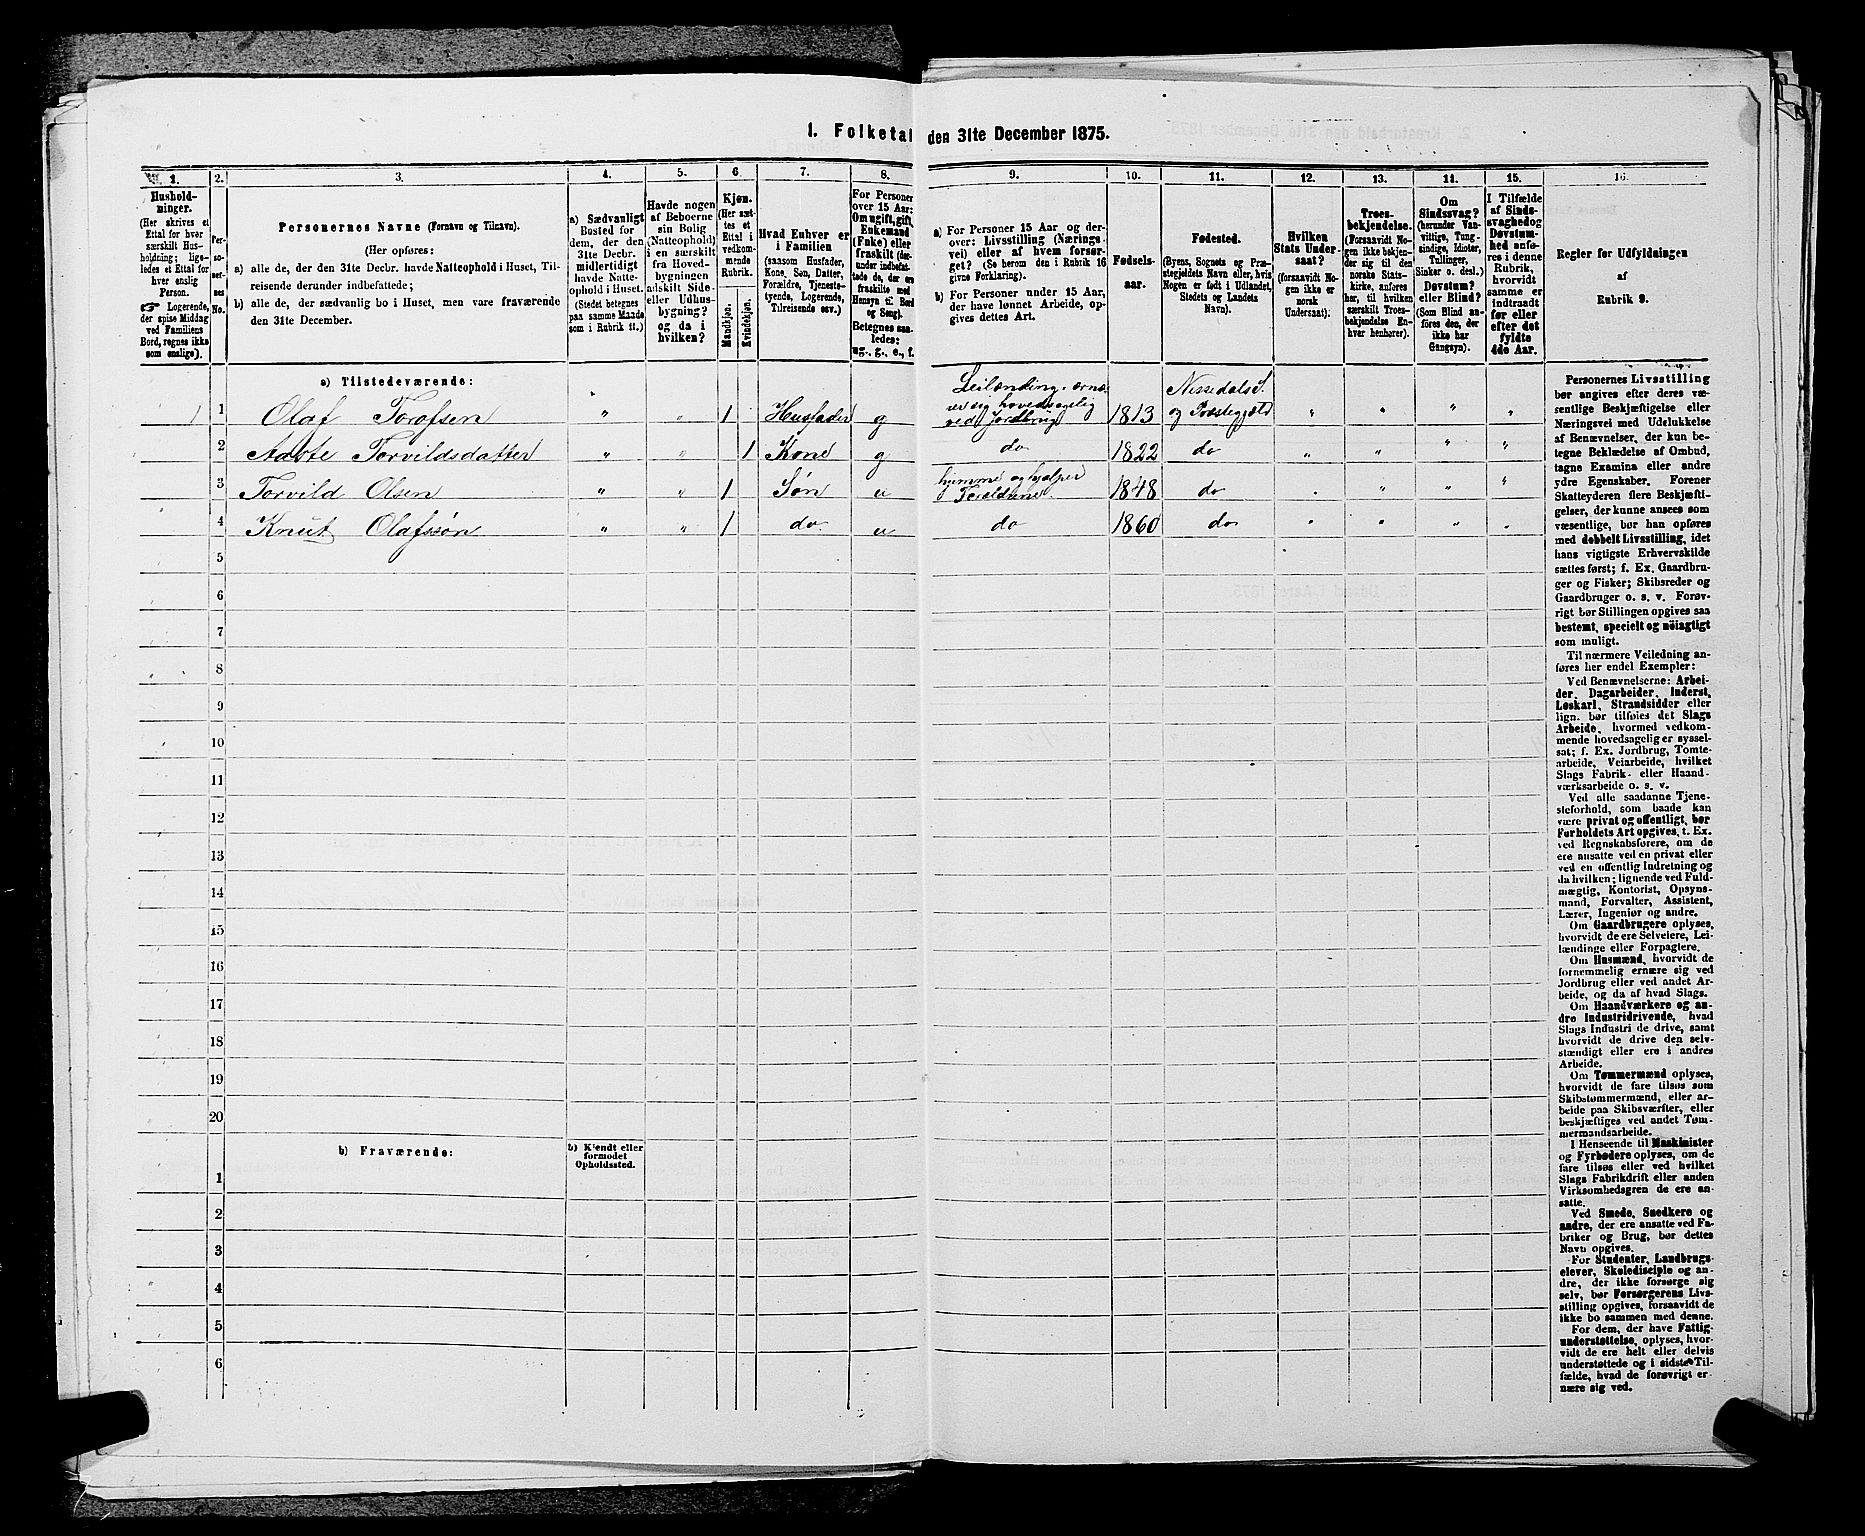 1. Folketal den 31te December 1875.
1. 2. 3. 4. 5. 6. 7. 8. 9. 10. 11. 12. 13. 14. 15. 16.
Hushold-
ninger.
(Her skrives et
Ettal for hver
særskilt Hus-
holdning; lige-
ledes et Ettal for
hver enslig
Person.
☞ Logerende,
der spise Middag
ved Familiens
Bord, regnes ikke
som enslige).
Per-
so-
ner-
nes
No.
Personernes Navne (Fornavn og Tilnavn).
(Her opføres:
a) alle de, der den 31te Decbr. havde Natteophold i Huset, Til-
reisende derunder indbefattede;
b) alle de, der sædvanlig bo i Huset, men vare fraværende
den 31te December.
a) Sædvanligt
Bosted for
dem, der den
31te Decbr.
midlertidigt
havde Natte-
ophold i Huset.
(Stedet betegnes
paa samme Maade
som i Rubrik 11.)
Havde nogen
af Beboerne
sin Bolig
(Natteophold)
i en særskilt
fra Hoved-
bygningen
adskilt Side-
eller Udhus-
bygning?
og da i
hvilken?
Kjøn.
(Her sæt-
tes et
Ettal i
vedkom-
mende
Rubrik.
Mandkjøn.
Kvindekjøn.
Hvad Enhver er
i Familien
(saasom Husfader,
Kone, Søn, Datter,
Forældre, Tjeneste-
tyende, Logerende,
Tilreisende osv.)
For Personer
over 15 Aar:
Om ugift, gift,
Enkemand
(Enke) eller
fraskilt (der-
under indbefat-
tede de, der ere
fraskilte med
Hensyn til Bord
og Seng).
Betegnes saa-
ledes:
ug., g., e., f.
a) For Personer 15 Aar og der-
over: Livsstilling (Nærings-
vei) eller af hvem forsør-
get? (Se herom den i Rubrik 16
givne Forklaring).
b) For Personer under 15 Aar,
der have lønnet Arbeide, op-
gives dettes Art.
Fødsels-
aar.
Fødested.
(Byens, Sognets og Præ-
stegjeldets Navn eller, hvis
Nogen er født i Udlandet,
Stedets og Landets
Navn).
Hvilken
Stats Under-
saat?
(forsaavidt No-
gen ikke er
norsk
Undersaat).
Troes-
bekjendelse.
(Forsaavidt No-
gen ikke bekjen-
der sig til den
norske Stats-
kirke, anføres
her, til hvilken
særskilt Troes-
bekjendelse En-
hver henhører).
Om
Sindssvag?
(herunder Van-
vittige, Tung-
sindige, Idioter,
Tullinger,
Sinker o. desl.)
Døvstum?
eller Blind?
(Som Blind an-
føres den, der
ikke har
Gangsyn).
I Tilfælde
af Sinds-
svaghed og
Døvstum-
hed anfø-
res i denne
Rubrik,
hvorvidt
samme er
indtraadt
før eller
efter det
fyldte
4de Aar.
Regler for Udfyldningen
af
Rubrik 9.
a) Tilstedeværende:
1 1 Olaf Torofsen " " 1 Husfader g Leilænding. ernæ-
rer sig hovedsagelig
ved Jordbrug 1813 Nissedals S.
og Præstegjæld " " " "
2 Aaste Torvildsdatter " " 1 Kone g do 1822 do " " " "
3 Torvild Olsen " " 1 Søn u hjemme og hjælper
Forældrene. 1848 do " " " "
4 Knut Olafssøn " " 1 do. u do 1860 do " " " "
5
6
7
8
9
10
11
12
13
14
15
16
17
18
19
20
b) Fraværende:
b) Kjendt eller
formodet
Opholdssted.
1
2
3
4
5
6
Personernes Livsstilling
bør angives efter deres væ-
sentlige Beskjæftigelse eller
Næringsvei med Udelukkelse
af Benævnelser, der kun be-
tegne Beklædelse af Ombud,
tagne Examina eller andre
ydre Egenskaber. Forener
Skatteyderen flere Beskjæfti-
gelser, der kunne ansees som
væsentlige, bør han opføres
med dobbelt Livsstilling, idet
hans vigtigste Erhvervskilde
sættes først; f. Ex. Gaardbru-
ger og Fisker; Skibsreder og
Gaardbruger o. s. v. Forøv-
rigt bør Stillingen opgives saa
bestemt, specielt og nöiagtigt
som muligt.
Til nærmere Veiledning an-
føres her endel Exempler:
Ved Benævnelserne: Arbei-
der, Dagarbeider, Inderst,
Løskarl, Strandsidder eller
lign. bør tilføies det Slags
Arbeide, hvormed vedkom-
mende hovedsagelig er syssel-
sat; f. Ex. Jordbrug, Tomte-
arbeide, Veiarbeide, hvilket
Slags Fabrik- eller Haand-
værksarbeide o. s. v.
Ved alle saadanne Tjene-
steforhold, som baade kan
være privat og offentligt, bør
Forholdets Art opgives, t. Ex.
ved Regnskabsførere, om de
ere ansatte ved en privat eller
ved en offentlig Indretning og
da hvilken; lignende ved Fuld-
mægtig, Kontorist, Opsyns-
mand, Forvalter, Assistent,
Lærer, Ingeniør og andre.
Om Gaardbrugere oplyses,
hvorvidt de ere Selveiere, Lei-
lændinge eller Forpagtere.
Om Husmænd, hvorvidt de
fornemmelig ernære sig ved
Jordbrug eller ved andet Ar-
beide, og da af hvad Slags.
Om Haandværkere og an-
dre Industridrivende, hvad
Slags Industri de drive, samt
hvorvidt de drive den selv-
stændigt eller ere i andres
Arbeide.
Om Tømmermænd oplyses,
hvorvidt de fare tilsøs som
Skibstømmermænd, eller ar-
beide paa Skibsværfter, eller
beskjæftiges ved andet Tøm-
mermandsarbeide.
I Henseende til Maskinister
og Fyrbødere oplyses, om de
fare tilsøs eller ved hvilket
Slags Fabrikdrift eller anden
Virksomhedsgren de ere an-
satte.
Ved Smede, Snedkere og
andre, der ere ansatte ved Fa-
briker og Brug, bør dettes
Navn opgives.
For Studenter, Landbrugs-
elever, Skoledisciple og an-
dre, der ikke forsørge sig
selv, bør Forsørgerens Livs-
stilling opgives, forsaavidt de
ikke bo sammen med denne.
For dem, der have Fattig-
understøttelse, oplyses, hvor-
vidt de ere helt eller delvis
understøttede og i sidste Til-
fælde, hvad de forøvrigt er-
nære sig ved.